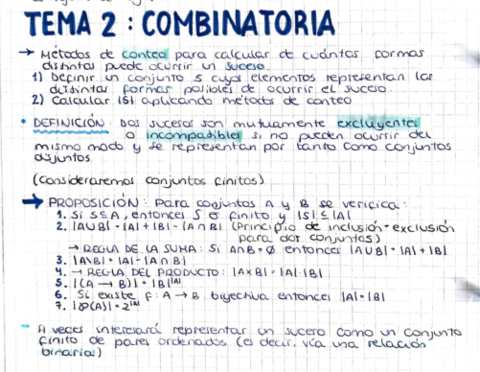 TEMA 2 : COMBINATORIA
→ Métodos de conteo para calcular de cuántas formas
distintas puede ocurrir un suceso.
1) Definir un conjunto S cuyos elementos representan las
distintas formas posibles de ocurrir el suceso.
2) Calcular |S| aplicando métodos de conteo
• DEFINICIÓN: Dos sucesos son mutuamente excluyentes
o incompatibles si no pueden ocurrir del
mismo modo y se representan por tanto como conjuntos
disjuntos.
(Consideraremos conjuntos finitos)
→ PROPOSICIÓN: Para conjuntos A y B se verifica:
1. Si S⊆A, entonces S es finito y |S|≤|A|
2. |A∪B| = |A| + |B| - |A∩B| (Principio de inclusión-exclusión
para dos conjuntos)
→ REGLA DE LA SUMA: Si A∩B = ∅ entonces |A∪B| = |A| + |B|
3. |A\B| = |A| - |A∩B|
4. → REGLA DEL PRODUCTO: |A×B| = |A|·|B|
5. |(A → B)| = |B|^|A|
6. Si existe f: A → B biyectiva entonces |A| = |B|
7. |℘(A)| = 2^|A|
- A veces interesará representar un suceso como un conjunto
finito de pares ordenados (es decir, vía una relación
binaria)